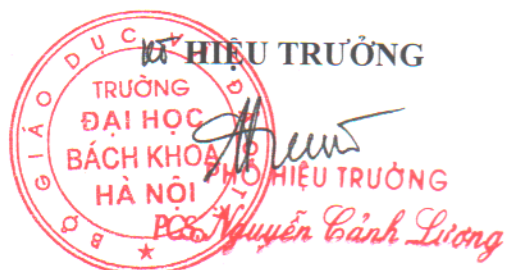 KT HIỆU TRƯỞNG
BỘ GIÁO DỤC VÀ ĐÀO TẠO
TRƯỜNG
ĐẠI HỌC
BÁCH KHOA
HÀ NỘI
★
PHÓ HIỆU TRƯỞNG
PGS. Nguyễn Cảnh Lương